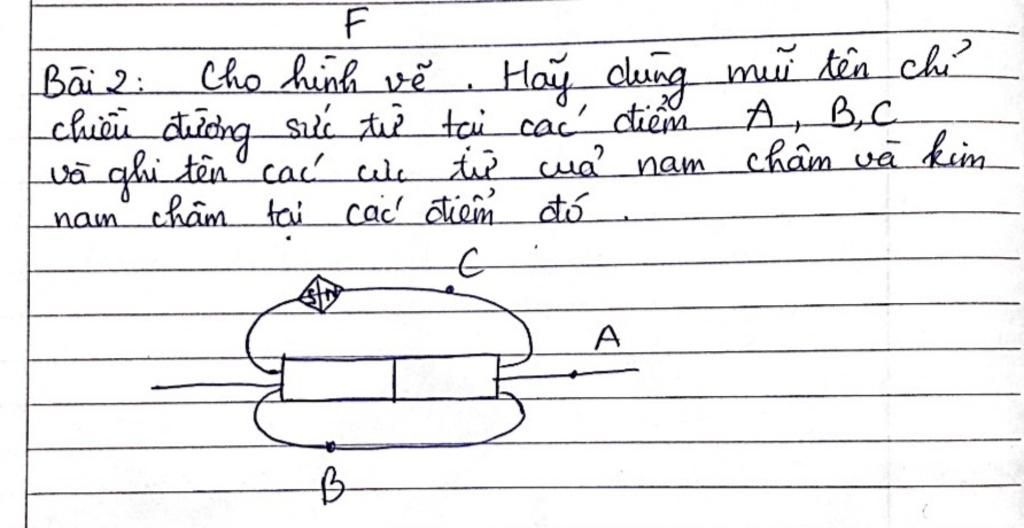 F
Bài 2: Cho hình vẽ. Hãy dùng mũi tên chỉ
chiều đường sức từ tại các điểm A, B, C
và ghi tên các cực từ của nam châm và kim
nam châm tại các điểm đó.
C
S N
A
B